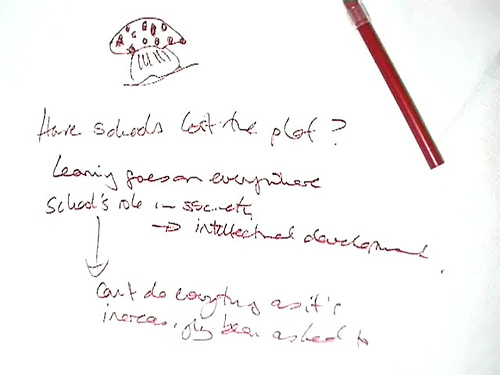 Have schools lost the plot?
Learning goes on everywhere
School's role in society
→ intellectual development.
can't do everything as it's
increasingly been asked to